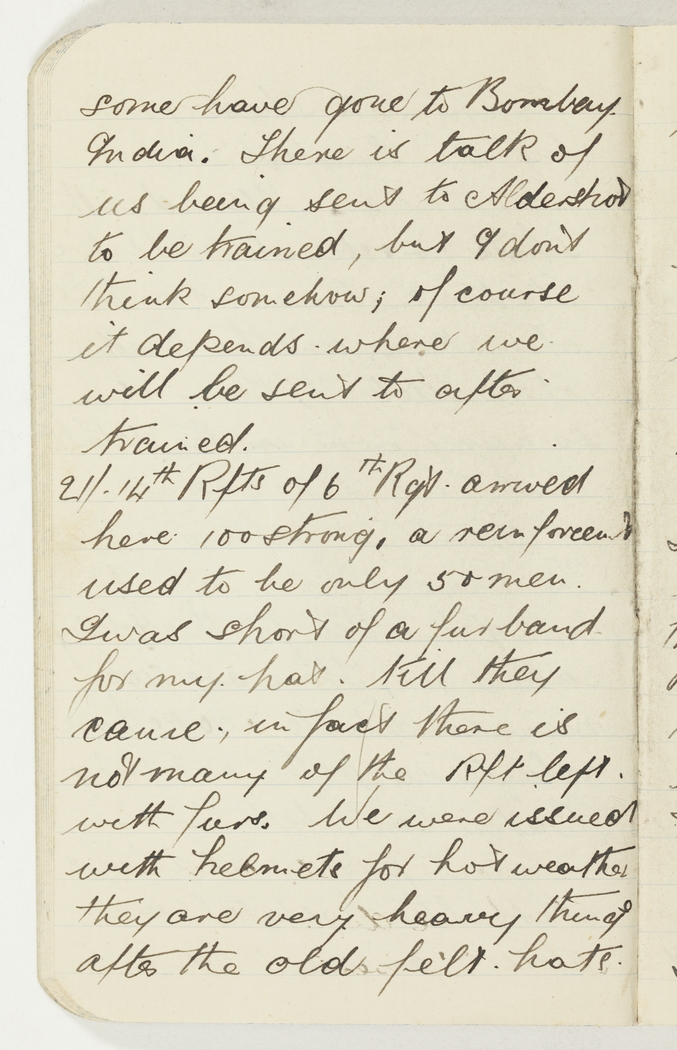 some have gone to Bombay
India. There is talk of
us being sent to Aldershot
to be trained, but I don't
think somehow; of course
it depends where we
will be sent to after
trained.
21/. 14th Rfts of 6th Rgt. arrived
here 100 strong, a reinforcent
used to be only 50 men.
I was short of a fur band
for my hat. till they
came, in fact there is
not many of the Rft left.
with furs. We were issued
with helmets for hot weather
they are very heavy things
after the old felt hats.